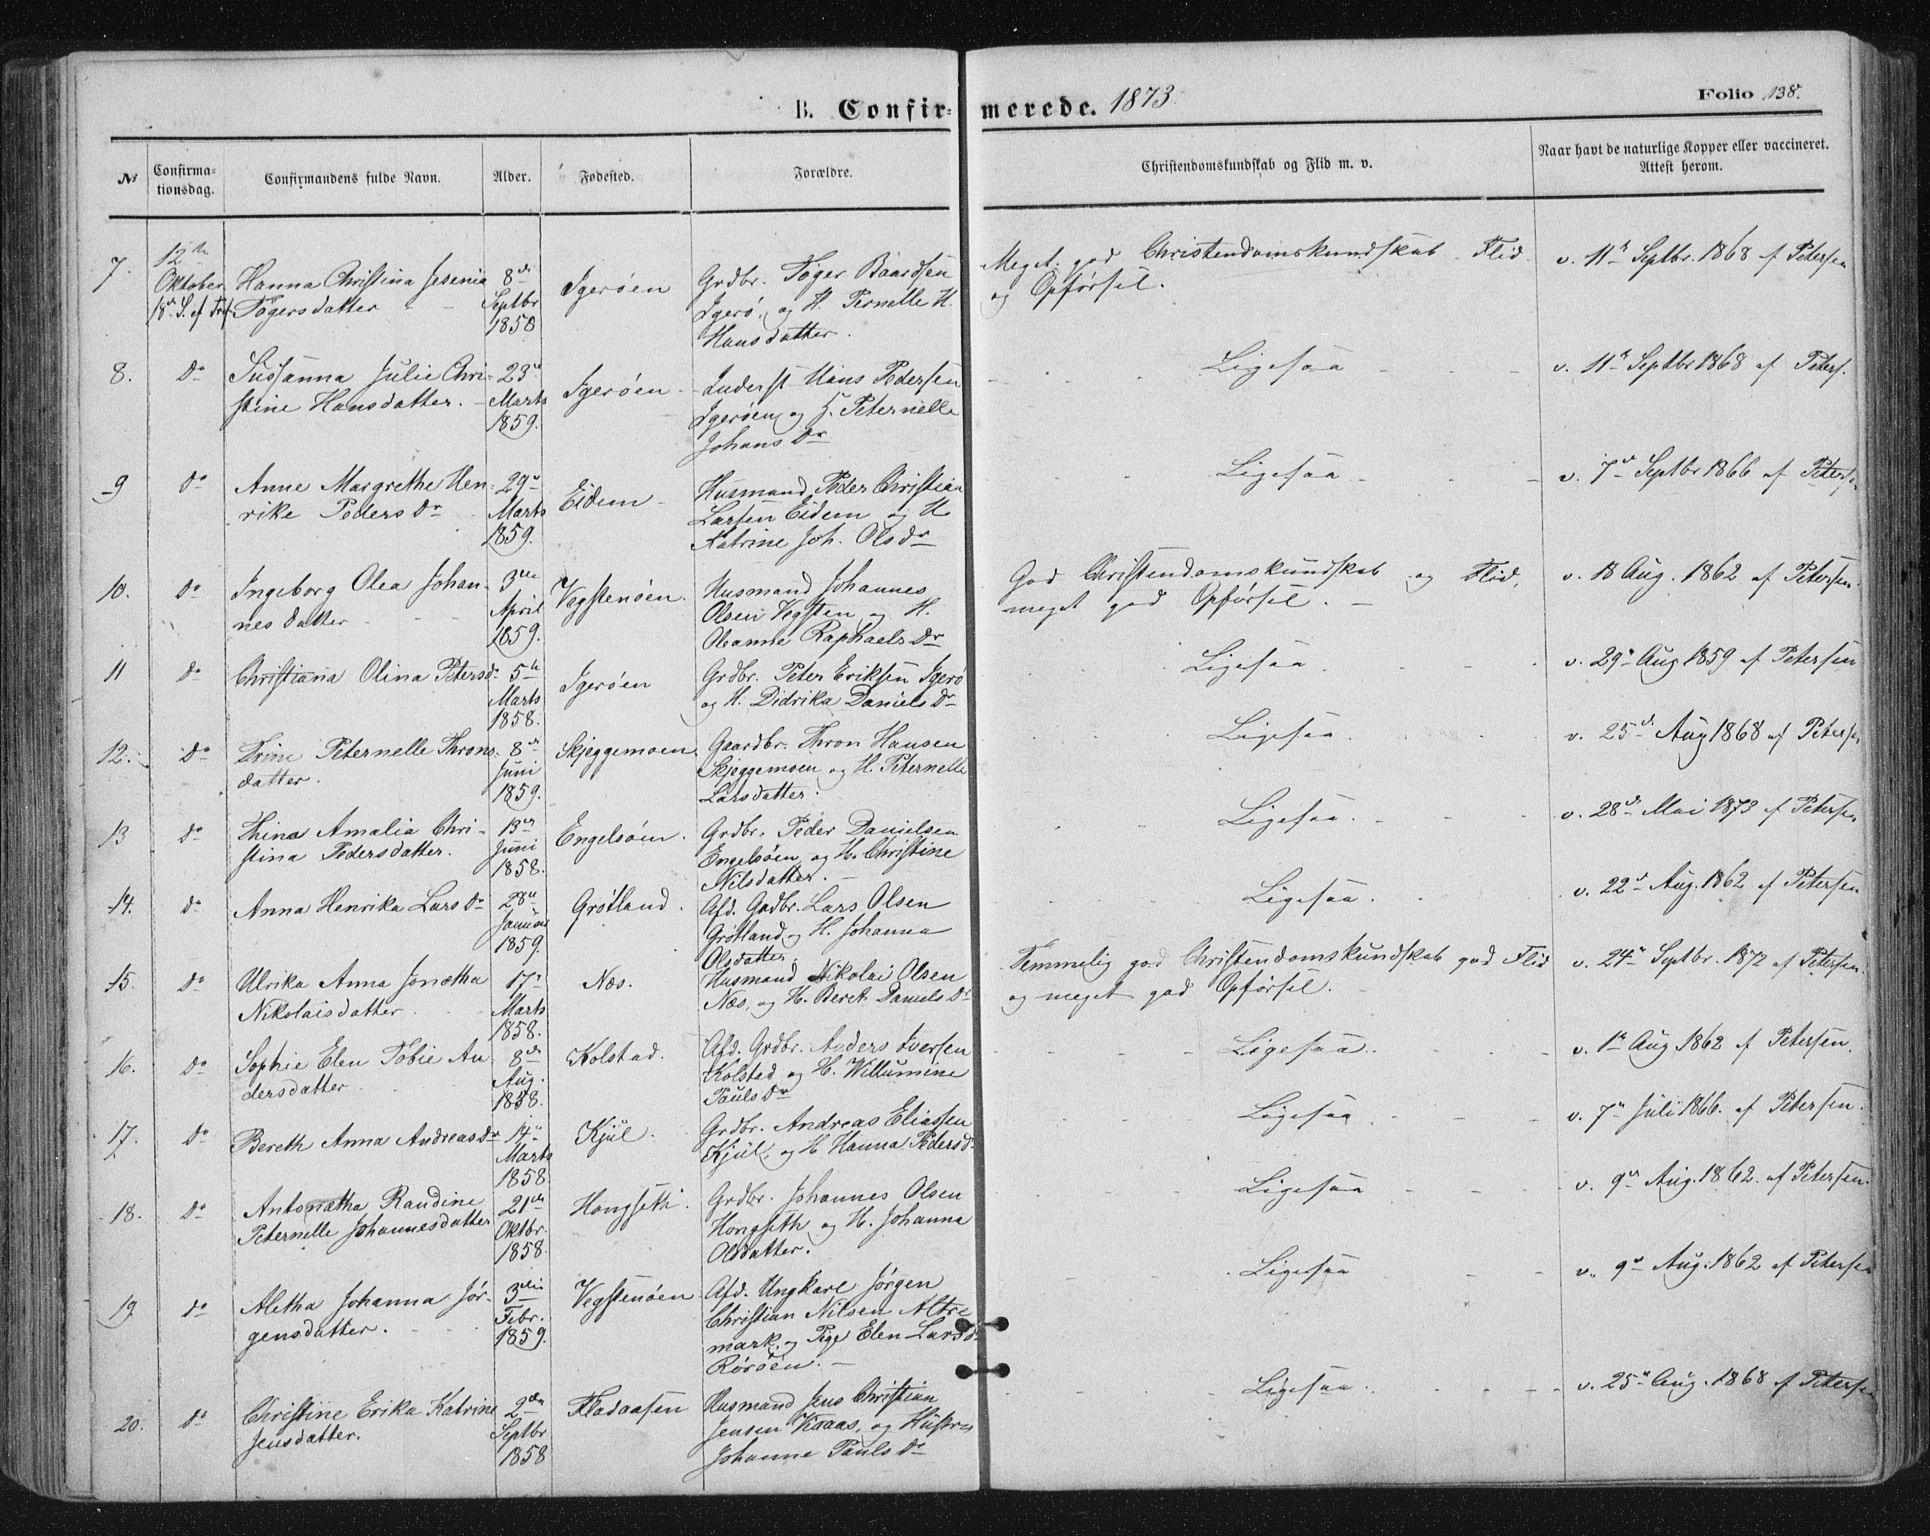 B. Confirmerede. 1873.
Folio 138.
№ Confirmationsdag. Confirmandens fulde Navn. Alder. Fødested. Forældre. Christendomskundskab og Flid m. v. Naar havt de naturlige Kopper eller vaccineret. Attest herom.
7. 12te Oktober 18de S. ef Tref
Hanna Christina Jesenia
Tøgersdatter
8de Septbr 1858
Igerøen
Grdbr. Tøger Baardsen
Igerø, og H. Pernelle H.
Hansdatter.
Meget god Christendomskundskab Flid
og Opførsel.
v. 11te Septbr. 1868 af Petersen
8. Do
Sussanna Julie Chri-
stine Hansdatter.
23de Marts 1859.
Igerøen
Inderst Hans Pedersen
Igerøen, og H. Peternelle
Johans Dr
Ligesaa
v. 11te Septbr 1868 af Peters.
9 Do
Anne Margrethe Hen-
rike Peders Dr
29de Marts 1859.
Eidem
Husmand Peder Christian
Larsen Eidem og H.
Katrine Joh. Ols Dr
Ligesaa
v. 7de Septbr 1866 af Petersen
10. Do
Ingeborg Olea Johan-
nesdatter
3die April 1859.
Vegstenøen.
Husmand Johannes
Olsen Vegsten og H.
Oleanne Raphaels Dr
God Christendomskundskab og Flid,
meget god Opførsel.
v. 18 Aug. 1862 af Petersen
11 Do
Christiana Olina Petersd.
5te Marts 1858.
Igerøen
Grdbr. Peter Eriksen Igerø
og H. Didrika Daniels Dr
Ligesaa
v. 29de Aug 1859 af Petersen
12. Do
Trine Peternelle Throns-
datter.
8de Juni 1859.
Skjeggemoen
Gaardbr. Thron Hansen
Skjeggemoen og H. Peternelle
Larsdatter.
Ligesaa.
v. 25de Aug 1868 af Petersen
13 Do
Thina Amalia Chri-
stina Pedersdatter.
13de Juni 1858.
Engelsøen.
Grdbr. Peder Danielsen
Engelsøen, og H. Christine
Nilsdatter.
Ligesaa.
v. 28de Mai 1873 af Petersen
14. Do
Anna Henrika Lars Dr
28de Januar 1859.
Grøtland.
Afd. Grdbr. Lars Olsen
Grøtland, og H. Johanna
Olsdatter.
Ligesaa.
v. 22de Aug. 1862 af Petersen
15. Do
Ulrika Anna Jonetha
Nikolaisdatter
17de Marts 1858.
Næs.
Husmand Nikolai Olsen
Næs, og H. Beret Daniels Dr
Temmelig god Christendomskundskab god Flid
og meget god Opførsel.
v. 24de Septbr. 1872 af Petersen.
16. Do
Sophie Elen Tobie An-
dersdatter
8de Aug. 1858.
Kolstad.
Afd. Grdbr. Anders Iversen
Kolstad og H. Willumine
Pauls Dr
Ligesaa.
v. 1te Aug 1862 af Petersen.
17. Do
Bereth Anna Andreas Dr
14de Marts 1858.
Kjul.
Grdbr. Andreas Eliassen
Kjul, og H Hanna Pedersd.
Ligesaa
v. 7de Juli 1866. af Petersen.
18. Do
Antonætha Randine
Peternelle Johannesdatter
21de Oktbr. 1858.
Hongseth.
Grdbr. Johannes Olsen
Hongseth og H. Johanna
Olsdatter.
Ligesaa
v. 9de Aug. 1862. af Petersen.
19. Do
Aletha Johanna Jør-
gensdatter.
3die Febr. 1859.
Vegstenøen
Afd. Ungkarl Jørgen
Christian Nilsen Altre
mark, og Pige Elen Larsd.
Rørøen.
Ligesaa
v. 9de Aug. 1862 af Petersen
20. Do
Christine Erika Katrine
Jensdatter.
2den Septbr 1858
Fladaasen
Husmand Jens Christian
Jensen Kaaas, og Hustru
Johanne Pauls Dr
Ligesaa.
v. 25de Aug. 1868 af Petersen